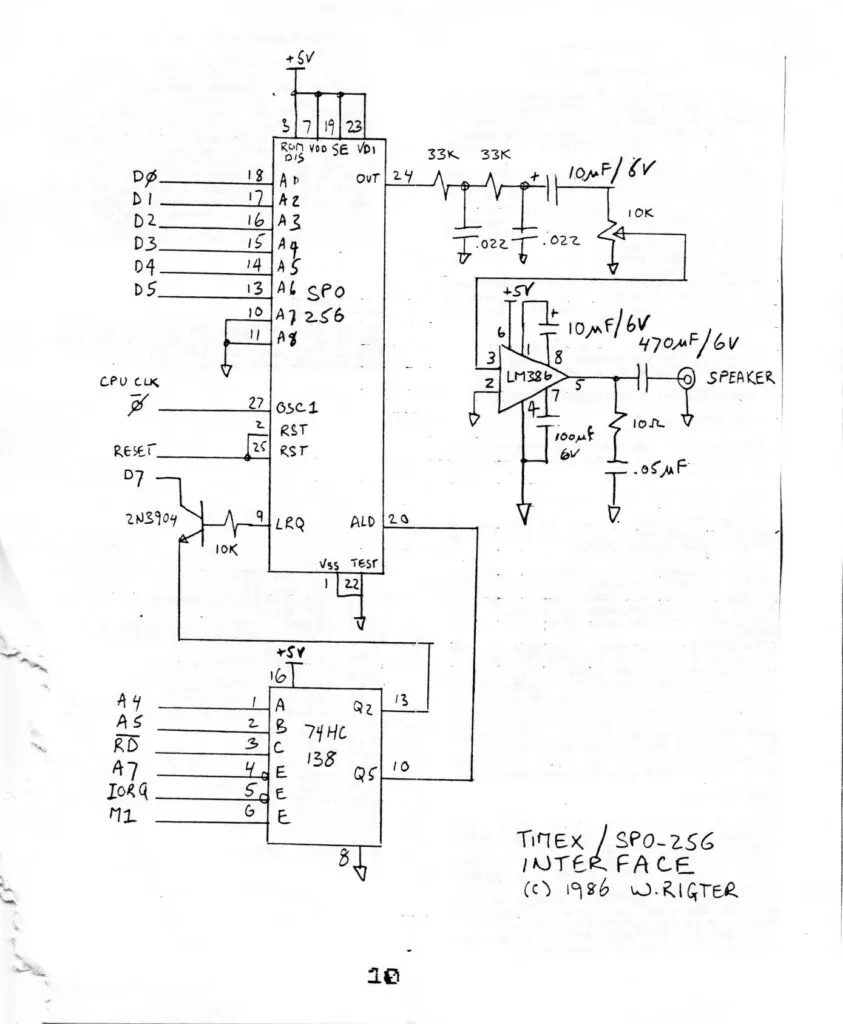 +5V
3 7 19 23
ROM DIS VDD SE VD1
D0 18 A0
D1 17 A2
D2 16 A3
D3 15 A4
D4 14 A5
D5 13 A6
10 A7
11 A8
SPO
256
OUT 24
33K 33K + 10µF/6V
10K
.022 .022
+5V
+
10µF/6V
470µF/6V
6 1 8
3
2
LM386
5
7
4
SPEAKER
10Ω
100µF
6V
.05µF
CPU CLK
Φ 27 OSC1
2 RST
RESET 25 RST
D7
2N3904
10K
9 LRQ
ALD 20
VSS TEST
1 22
+5V
16
A4 1 A
A5 2 B
RD 3 C
A7 4 E
IORQ 5 E
M1 6 E
74HC
138
Q2 13
Q5 10
8
TIMEX / SPO-256
INTERFACE
(C) 1986 W.RIGTER
10